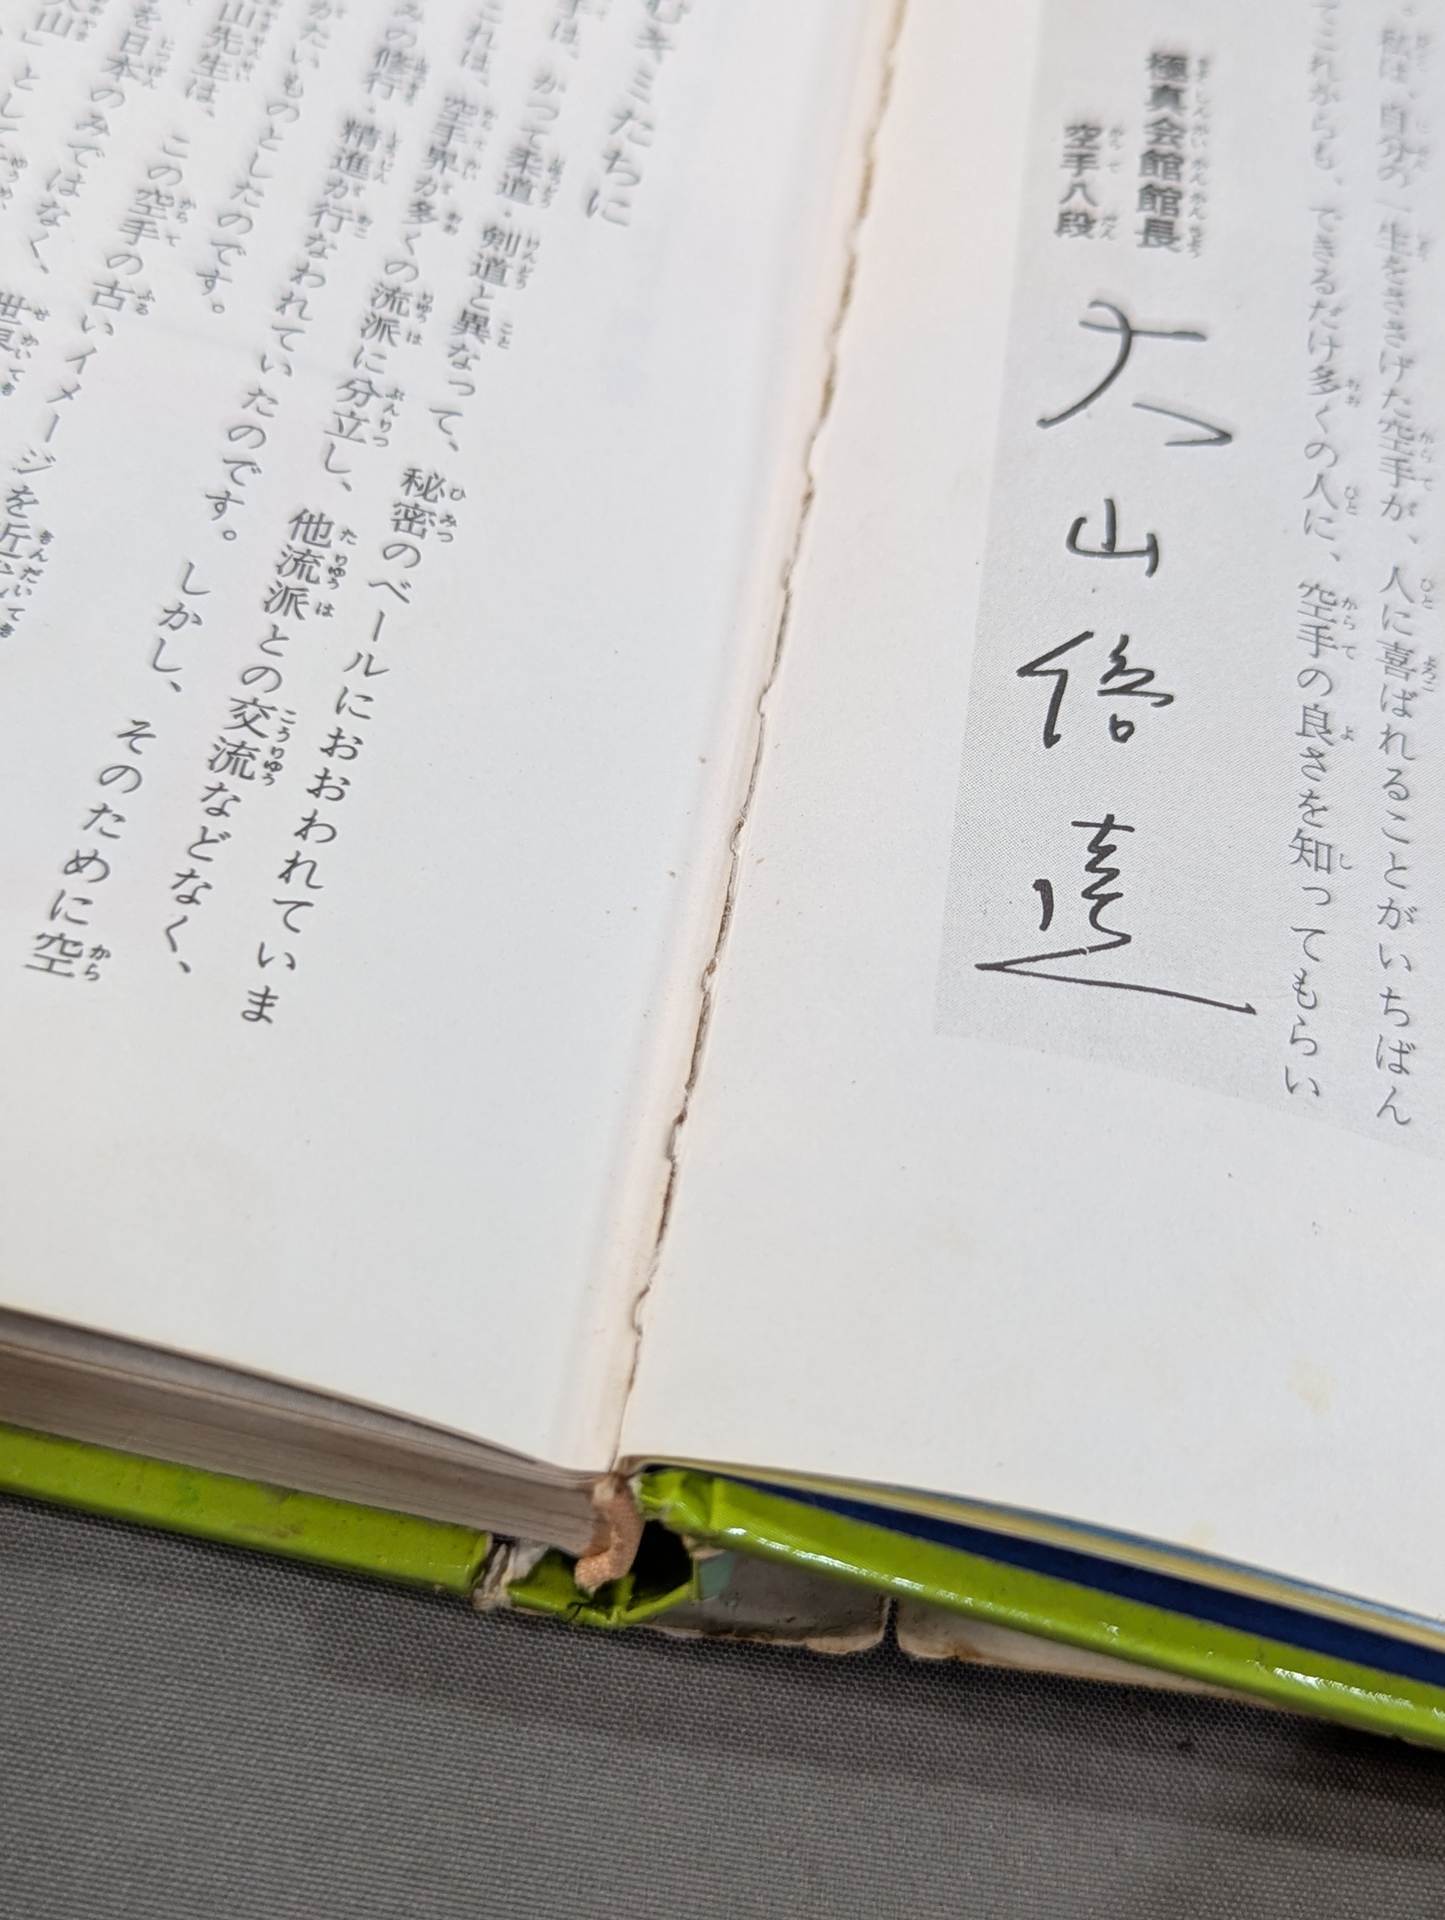 私は、自分の一生をささげた空手が、人に喜ばれることがいちばん
てこれからも、できるだけ多くの人に、空手の良さを知ってもらい
極真会館館長
空手八段
大山倍達
むキミたちに
手は、かつて柔道・剣道と異なって、秘密のベールにおおわれていま
これは、空手界が多くの流派に分立し、他流派との交流などなく、
みの修行・精進が行なわれていたのです。しかし、そのために空
がたいものとしたのです。
山先生は、この空手の古いイメージを近代的
を日本のみではなく、世界的
大山」として